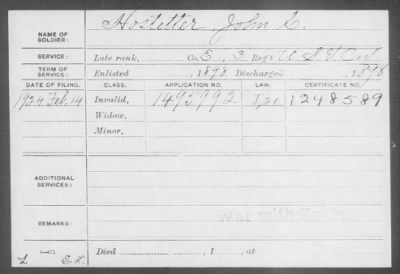 NAME OF SOLDIER: Hostetter John L.
SERVICE: Late rank, Co. E. 3 Regt U S V Cav
TERM OF SERVICE: Enlisted , 1898 Discharged , 1898
DATE OF FILING. CLASS. APPLICATION NO. LAW. CERTIFICATE NO.
1924 Feb. 14 Invalid, 1493992 1248589
Widow,
Minor,
ADDITIONAL SERVICES:
REMARKS:
Died , 1 , at